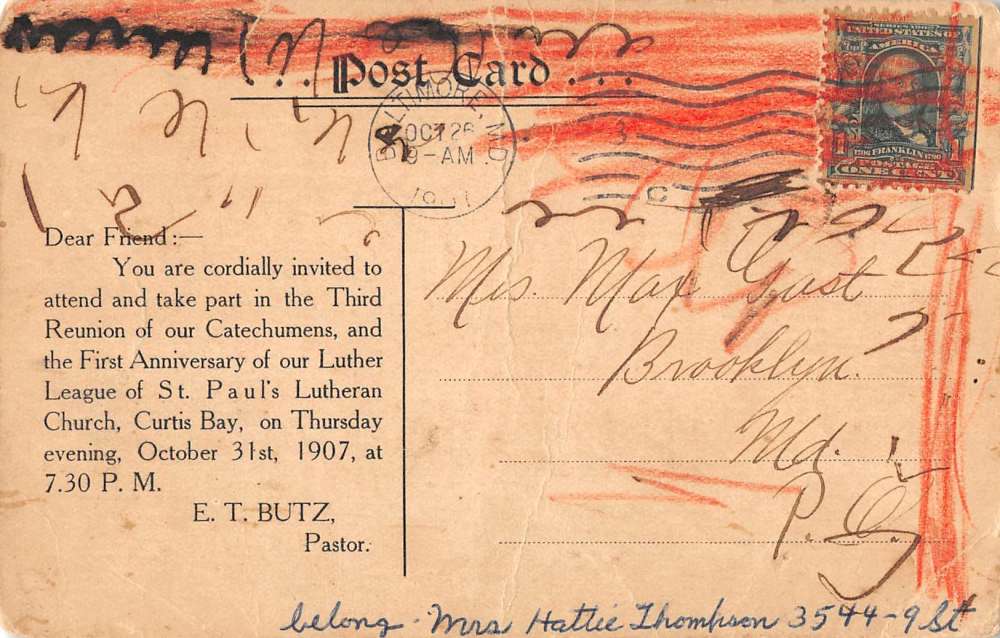 Post Card
BALTIMORE, MD
OCT 26
9-AM
SERIES 1902
UNITED STATES OF
AMERICA
1 FRANKLIN 1
POSTAGE
ONE CENT
Dear Friend:—
You are cordially invited to
attend and take part in the Third
Reunion of our Catechumens, and
the First Anniversary of our Luther
League of St. Paul's Lutheran
Church, Curtis Bay, on Thursday
evening, October 31st, 1907, at
7.30 P. M.
E. T. BUTZ,
Pastor.
Mrs. Max Gust
Brooklyn.
Md.
P. O.
belong Mrs Hattie Thompson 3544-9 St